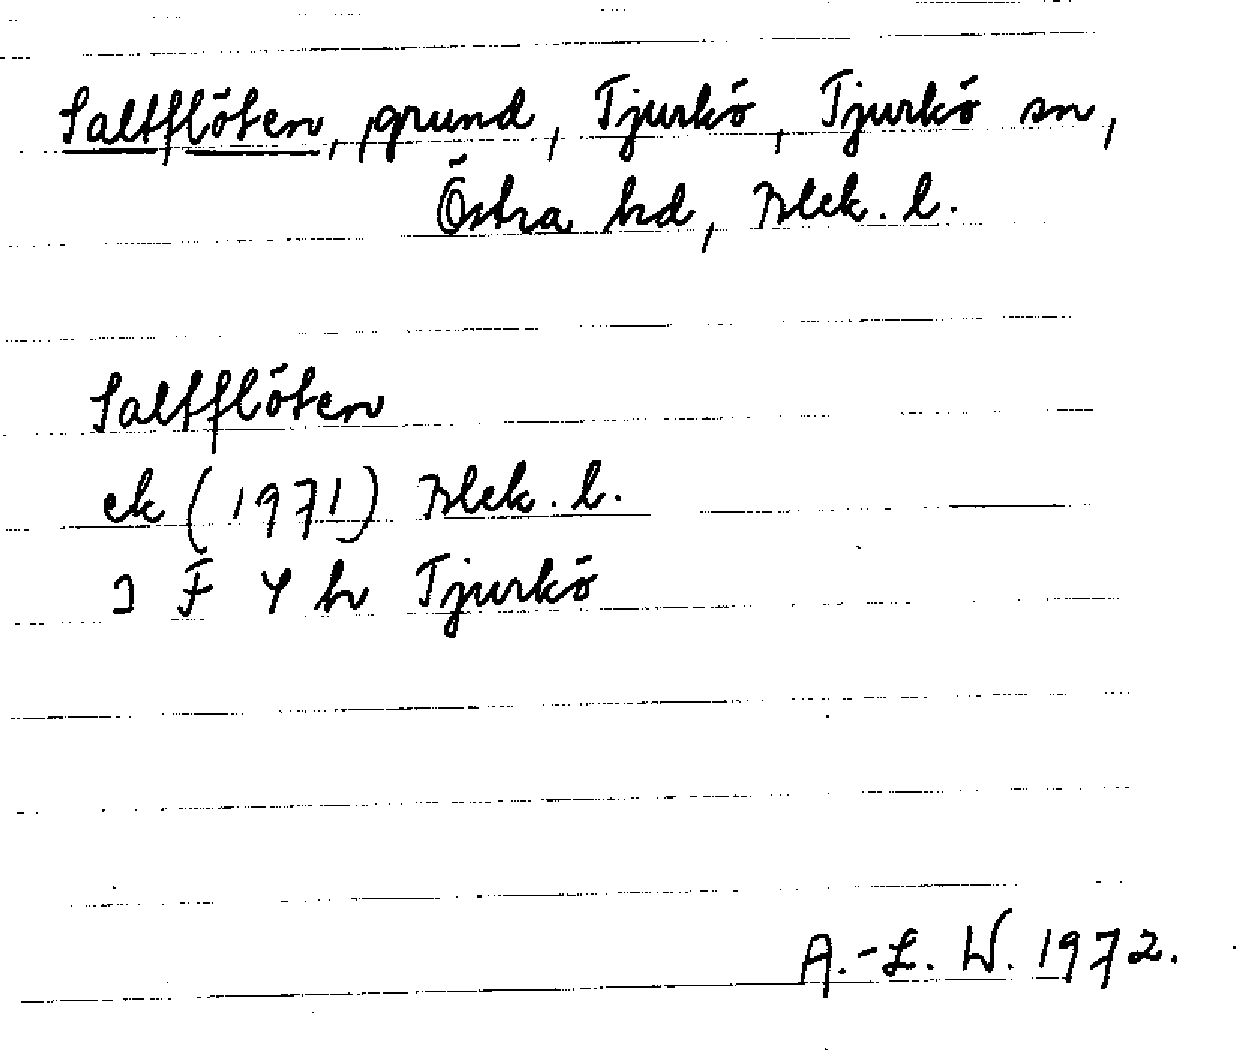 Saltflöten, grund, Tjurkö, Tjurkö sn,
Östra hd, Blek. l.
Saltflöten
ek (1971) Blek. l.
3 F 4 h Tjurkö
A.-L. W. 1972.